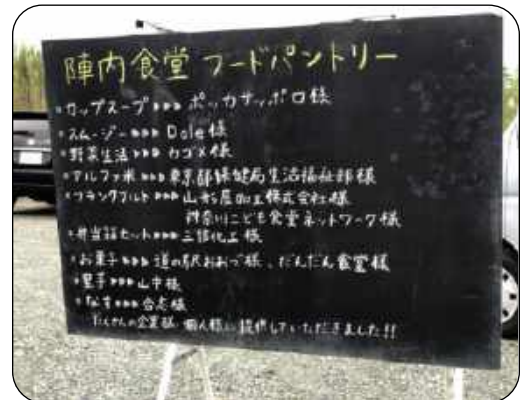 陣内食堂 フードパントリー
・カップスープ▸▸▸ ポッカサッポロ様
・スムージー▸▸▸ Dole様
・野菜生活▸▸▸ カゴメ様
・アルファ米▸▸▸東京都保健局生活福祉部様
・フランクフルト▸▸▸山形屋加工株式会社様
神奈川こども食堂ネットワーク様
・弁当箱セット▸▸▸三信化工様
・お菓子▸▸▸道の駅おおづ様、だんだん食堂様
・里芋▸▸▸山中様
・なす▸▸▸合志様
たくさんの企業様、個人様に提供していただきました!!